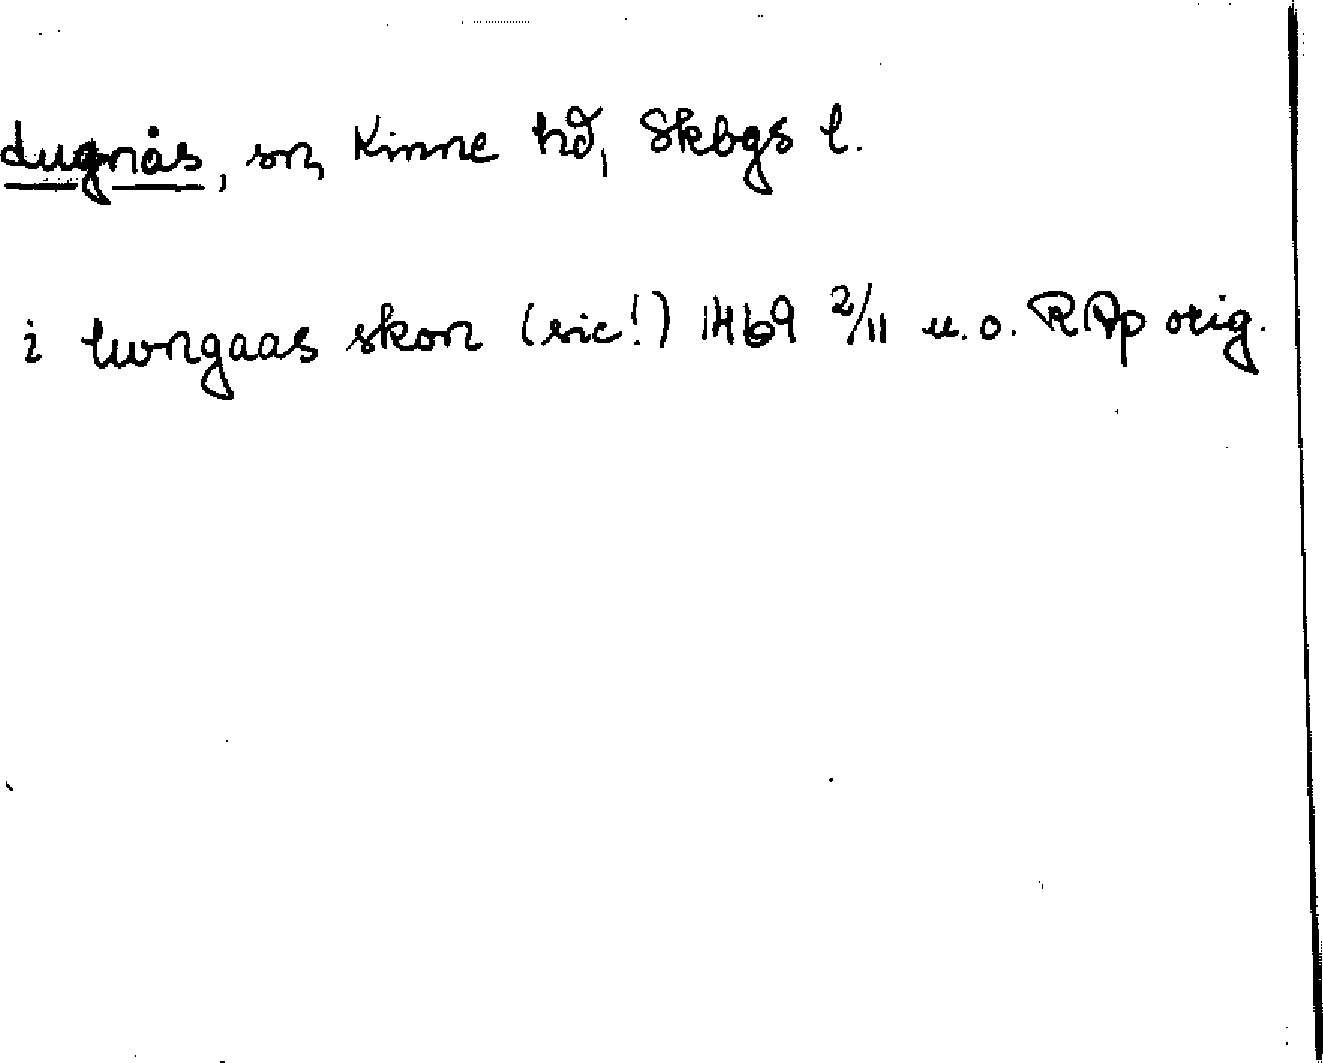 Lugnås, sn, Kinne hd, Skbgs l.
i lwngaas skon (sic!) 1469 2/11 u.o. RAp orig.